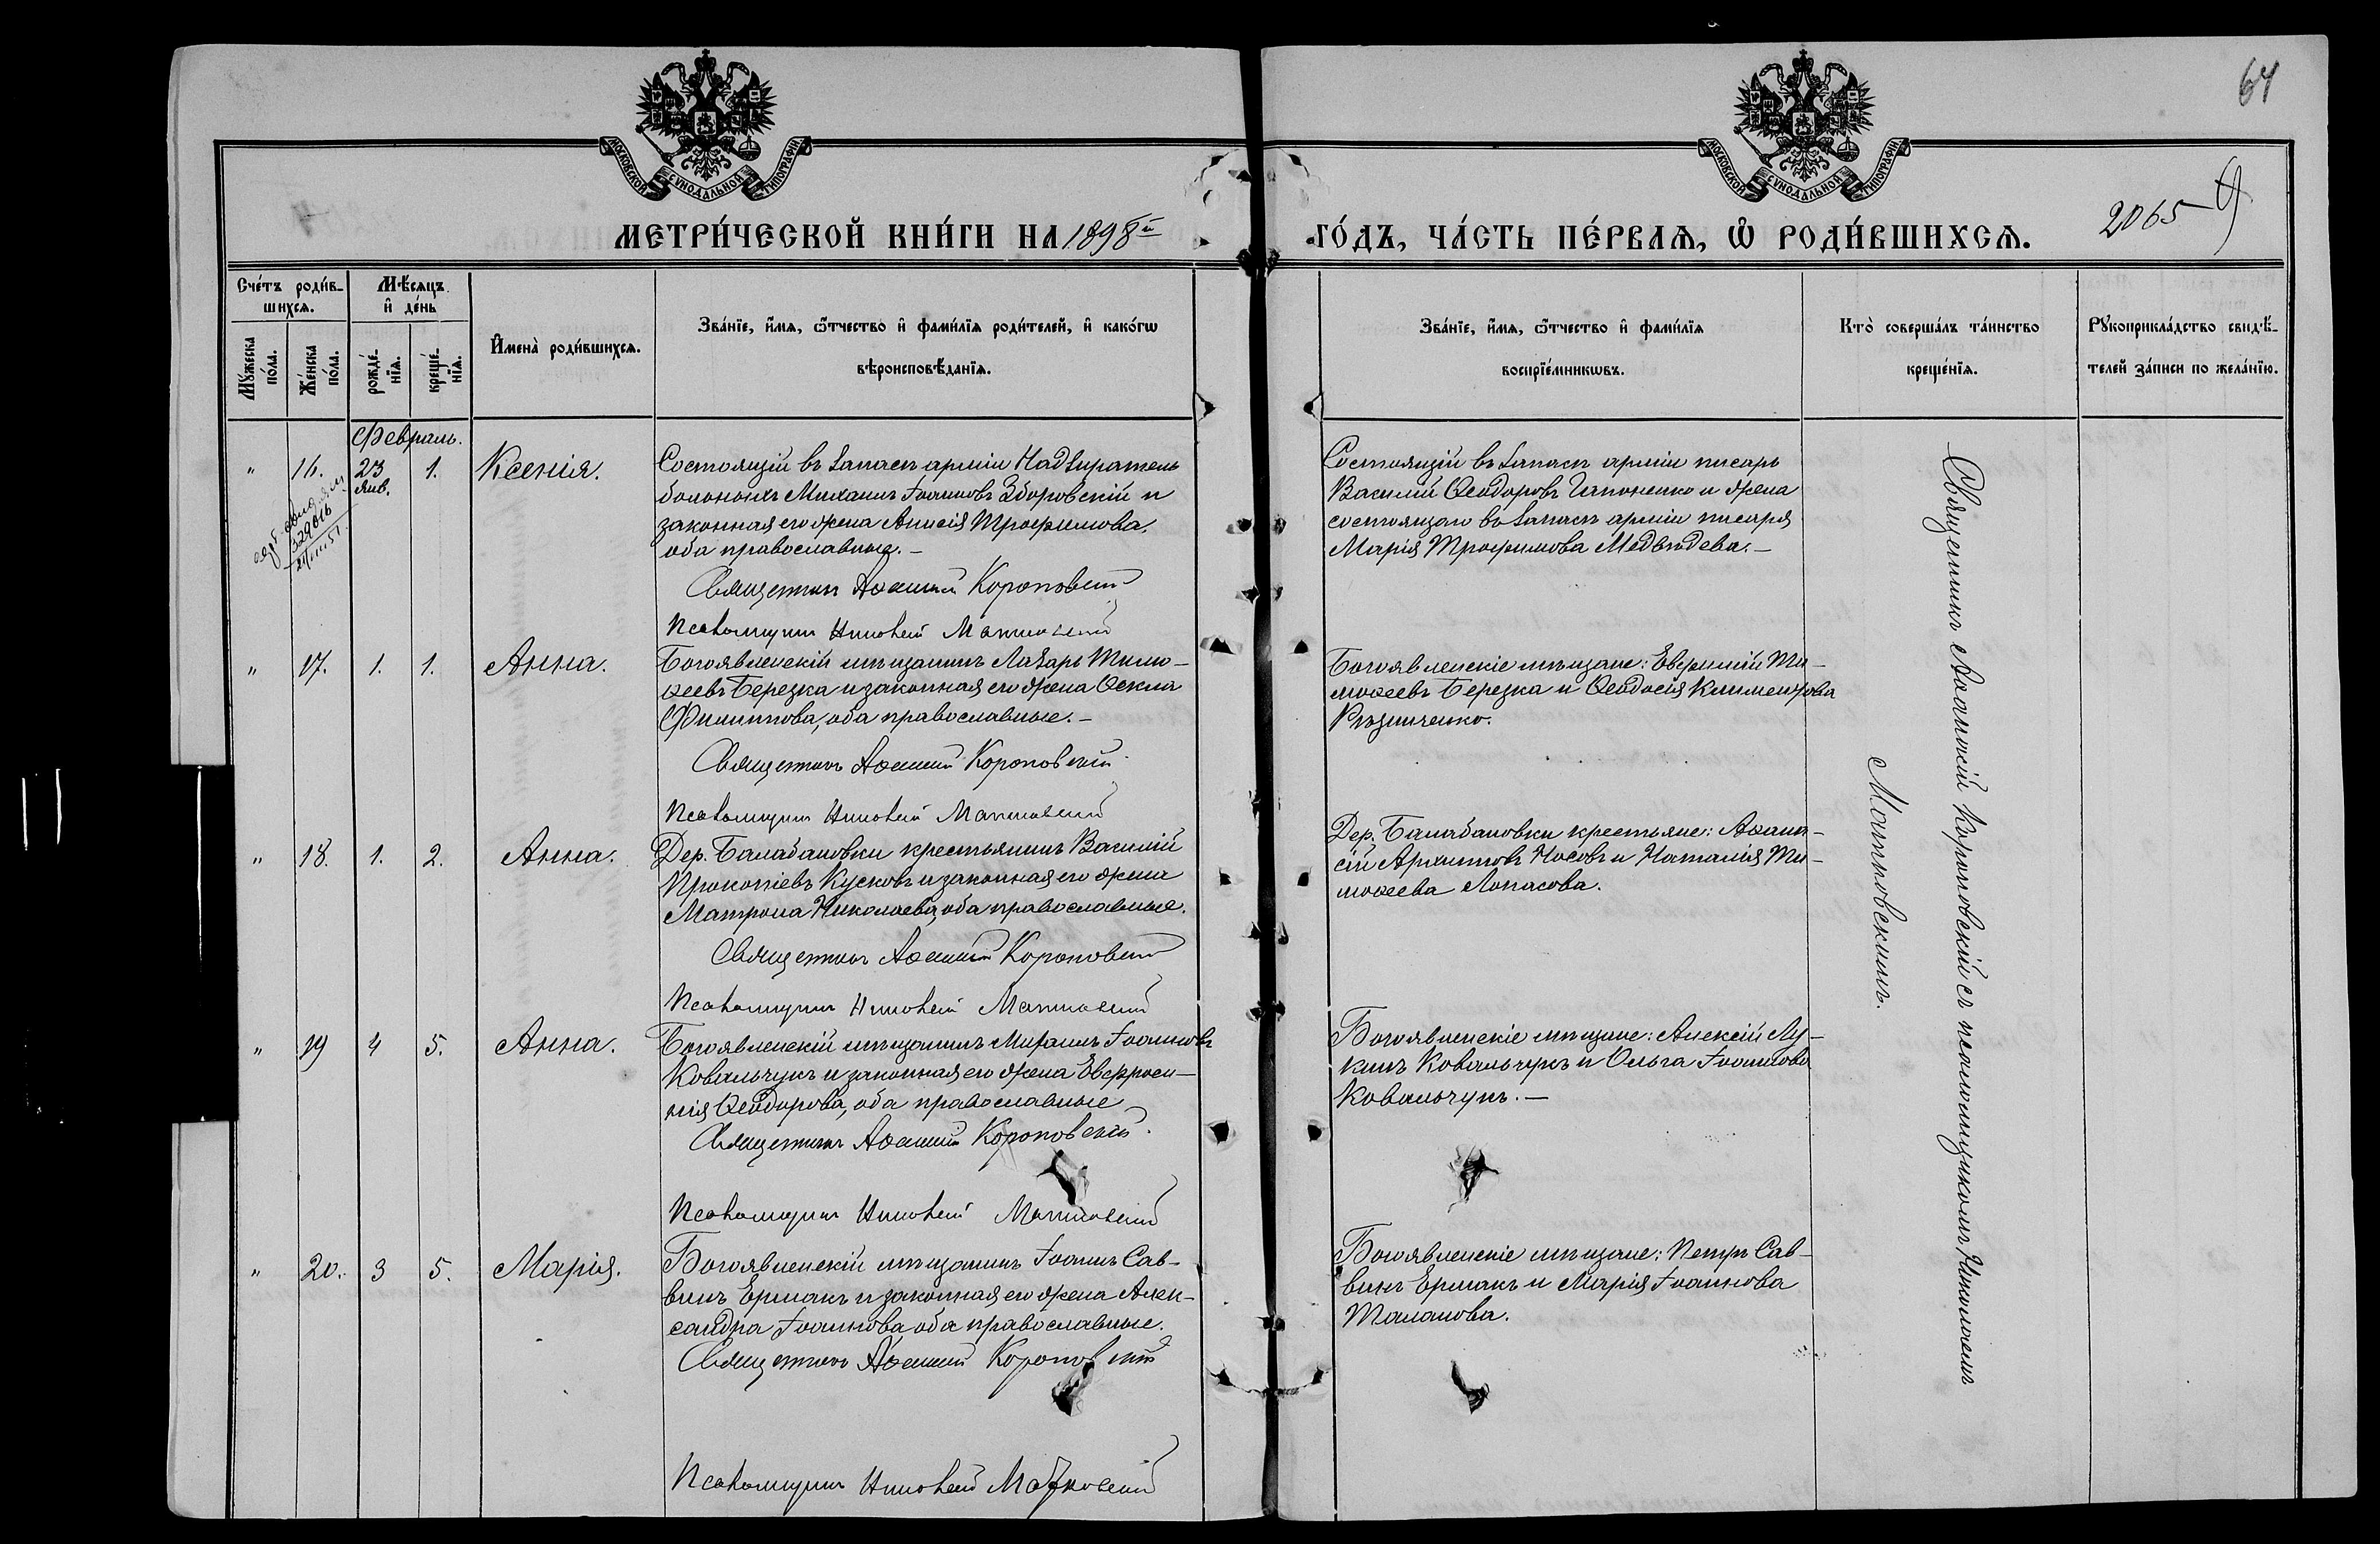 64
МОСКОВСКОЙ СѴНОДАЛЬНОЙ ТИПОГРАФІИ
МОСКОВСКОЙ СѴНОДАЛЬНОЙ ТИПОГРАФІИ
МЕТРИ́ЧЕСКОЙ КНИ́ГИ НА 1898й
ГО́ДЪ, ЧА́СТЬ ПЕ́РВАѦ, Ѽ РОДИ́ВШИХСѦ.
2065
Сче́тъ роди́в-
шихсѧ.
Мѣ́сѧцъ
и҆ де́нь
Мꙋ́жеска
по́ла.
Же́нска
по́ла.
рожде́-
нїѧ.
креще́-
нїѧ.
И҆мена̀ роди́вшихсѧ.
Зва́нїе, и҆́мѧ, ѻ҆́тчество и҆ фами́лїѧ роди́телей, и҆ како́гѡ
вѣроисповѣ́данїѧ.
Зва́нїе, и҆́мѧ, ѻ҆́тчество и҆ фами́лїѧ
воспрїе́мникѡвъ.
Кто̀ соверша́лъ та́инство
креще́нїѧ.
Рꙋкоприкла́дство свидѣ́-
телей за́писи по жела́нїю.
Февраль.
" 16. 23 Янв. 1. Ксенія.
Состоящій въ запасѣ арміи Надзиратель
больныхъ Михаилъ Іоанновъ Зборовскій и
законная его жена Анисія Трофимова,
оба православные.–
Священникъ Аѳанасій Короповскій
Псаломщикъ Николай Матковскій
Состоящій въ запасѣ арміи писарь
Василій Ѳеодоровъ Гапоненко и жена
состоящаго въ запасѣ арміи писаря
Марія Трофимова Медвѣдева.–
" 17. 1. 1. Анна.
Богоявленскій мѣщанинъ Лазарь Тимо-
ѳеевъ Березка и законная его жена Ѳекла
Филиппова, оба православные.–
Священникъ Аѳанасій Короповскій
Псаломщикъ Николай Матковскій
Богоявленскіе мѣщане: Евфимій Ти-
моѳеевъ Березка и Ѳеодосія Климентова
Рѣзниченко.
" 18. 1. 2. Анна.
Дер. Балабановки крестьянинъ Василій
Прокопіевъ Кусковъ и законная его жена
Матрона Николаева, оба православные.
Священникъ Аѳанасій Короповскій
Псаломщикъ Николай Матковскій
Дер. Балабановки крестьяне: Аѳана-
сій Архиповъ Носовъ и Наталія Ти-
моѳеева Лопасова.
" 19 4 5. Анна.
Богоявленскій мѣщанинъ Миронъ Іоанновъ
Ковальчукъ и законная его жена Евфроси-
нія Ѳеодорова, оба православные
Священникъ Аѳанасій Короповскій.
Псаломщикъ Николай Матковскій
Богоявленскіе мѣщане: Алексій Лу-
кинъ Ковальчукъ и Ольга Іоаннова
Ковальчукъ.–
" 20. 3 5. Марія.
Богоявленскій мѣщанинъ Іоаннъ Сав-
винъ Ермакъ и законная его жена Алек-
сандра Іоаннова, оба православные.
Священникъ Аѳанасій Короповскій
Псаломщикъ Николай Матковскій
Богоявленскіе мѣщане: Петръ Сав-
винъ Ермакъ и Марія Іоаннова
Таланова.
Священникъ Аѳанасій Короповскій съ псаломщикомъ Николаемъ
Матковскимъ.